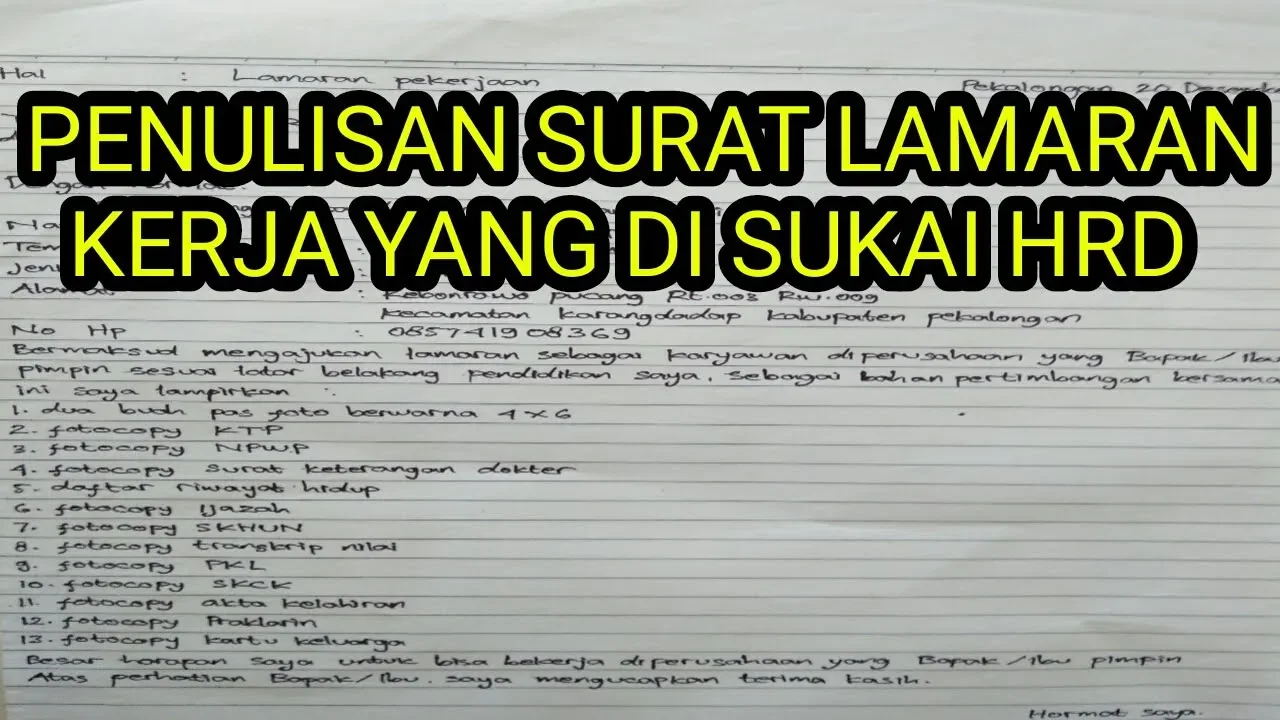 Hal : Lamaran pekerjaan
Pekalongan 20
PENULISAN SURAT LAMARAN
KERJA YANG DI SUKAI HRD
Alamat : Kebonrowo pucang Rt.003 Rw.009
kecamatan karangdadap kabupaten pekalongan
No Hp : 085741908369
Bermaksud mengajukan lamaran sebagai karyawan diperusahaan yang Bapak/ibu
pimpin sesuai latar belakang pendidikan saya, sebagai bahan pertimbangan bersama
ini saya lampirkan :
1. dua buah pas foto berwarna 4x6
2. fotocopy KTP
3. fotocopy NPWP
4. fotocopy surat keterangan dokter
5. daftar riwayat hidup
6. fotocopy ijazah
7. fotocopy SKHUN
8. fotocopy transkrip nilai
9. fotocopy PKL
10. fotocopy SKCK
11. fotocopy akta kelahiran
12. fotocopy Praklarin
13. fotocopy kartu keluarga
Besar harapan saya untuk bisa bekerja diperusahaan yang Bapak/ibu pimpin
Atas perhatian Bapak/ibu. saya mengucapkan terima kasih.
Hormat saya.